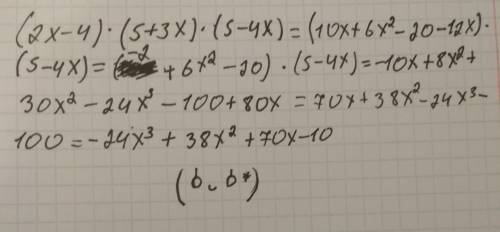 (2x-4)·(5+3x)·(5-4x)=(10x+6x²-20-12x)·
(5-4x)=(-2 +6x²-20)·(5-4x)=-10x+8x²+
30x²-24x³-100+80x=70x+38x²-24x³-
100=-24x³+38x²+70x-10